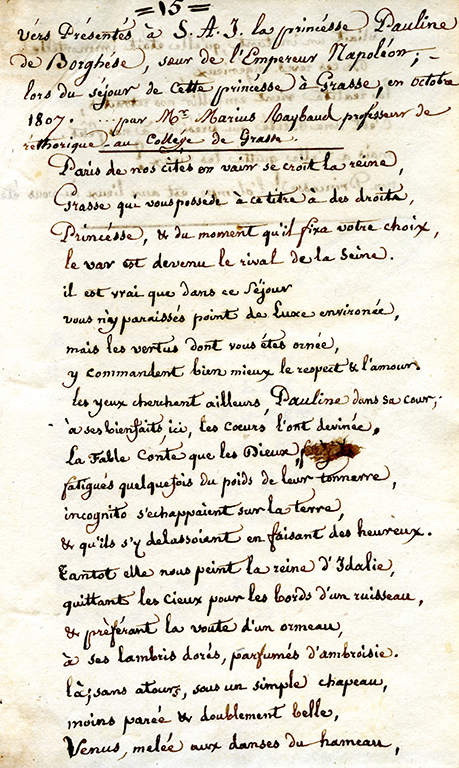 =15=
vérs Présentés à S. A. J. la princésse Pauline
de Borghése, seur de l'Empereur Napoléon;
lors du séjour de Cette princésse à Grasse, en octobre
1807. ....par Mr. Marius Raybaud proféseur de
réthorique au Collége de Grasse.
Paris de nos cités en vain se croit la reine,
Grasse qui vous posséde à ce titre à des droits,
Princésse, & du moment qu'il fixa votre choix,
le var est devenu le rival de la Seine.
il est vrai que dans ce Séjour
vous n'y paraissés point de Luxe environée,
mais les vertus dont vous étes ornée,
y commandent bien mieux le respect & l'amour.
les yeux cherchent ailleurs, Pauline dans sa cour;
à ses bienfaits, ici, les Coeurs l'ont devinée,
la Fable Conte que les Dieux,
fatigués quelquefois du poids de leur tonnerre,
incognito s'echappaient sur la terre,
& qu'ils s'y delassoiant en faisant des heureux.
Tantot elle nous peint la reine d'Idalie,
quittant les Cieux pour les bords d'un ruisseau,
& prèférant la voute d'un ormeau,
à ses lambris dorés, parfumés d'ambroisie.
là; sans atours, sous un simple chapeau,
moins parée & doublement belle,
Venus, melée aux danses du hameau,